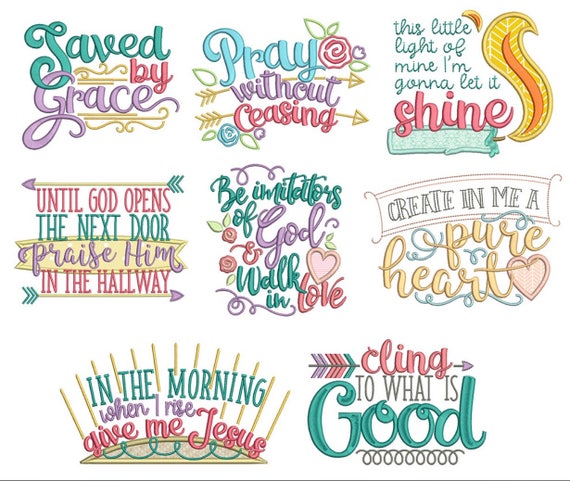 Saved
by
Grace
Pray
without
Ceasing
this little
light of
mine I'm
gonna let it
shine
UNTIL GOD OPENS
THE NEXT DOOR
praise Him
IN THE HALLWAY
Be imitators
of
God
&
Walk
in love
CREATE IN ME A
pure
heart
IN THE MORNING
when I rise
give me Jesus
cling
TO WHAT IS
Good